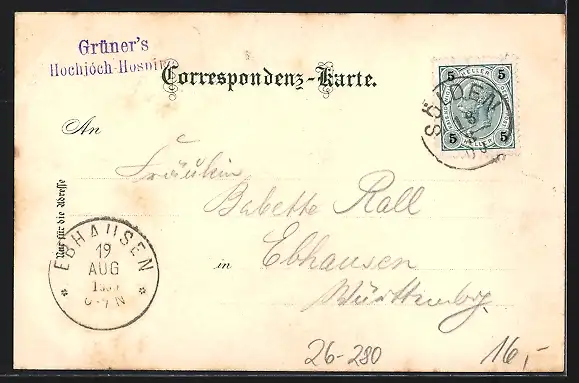 Grüner's
Hochjoch-Hospiz
Correspondenz-Karte.
5 HELLER 5
5 HELLER 5
SÖLDEN
An
Fräulein
Babette Rall
in Ebhausen
Württemberg.
Nur für die Adresse
EBHAUSEN
19
AUG
6-7 N
26-280
16,-